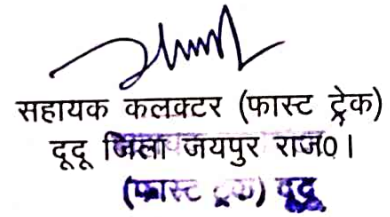 सहायक कलक्टर (फास्ट ट्रेक)
दूदू जिला जयपुर राज0।
(फास्ट ट्रेक) दूदू